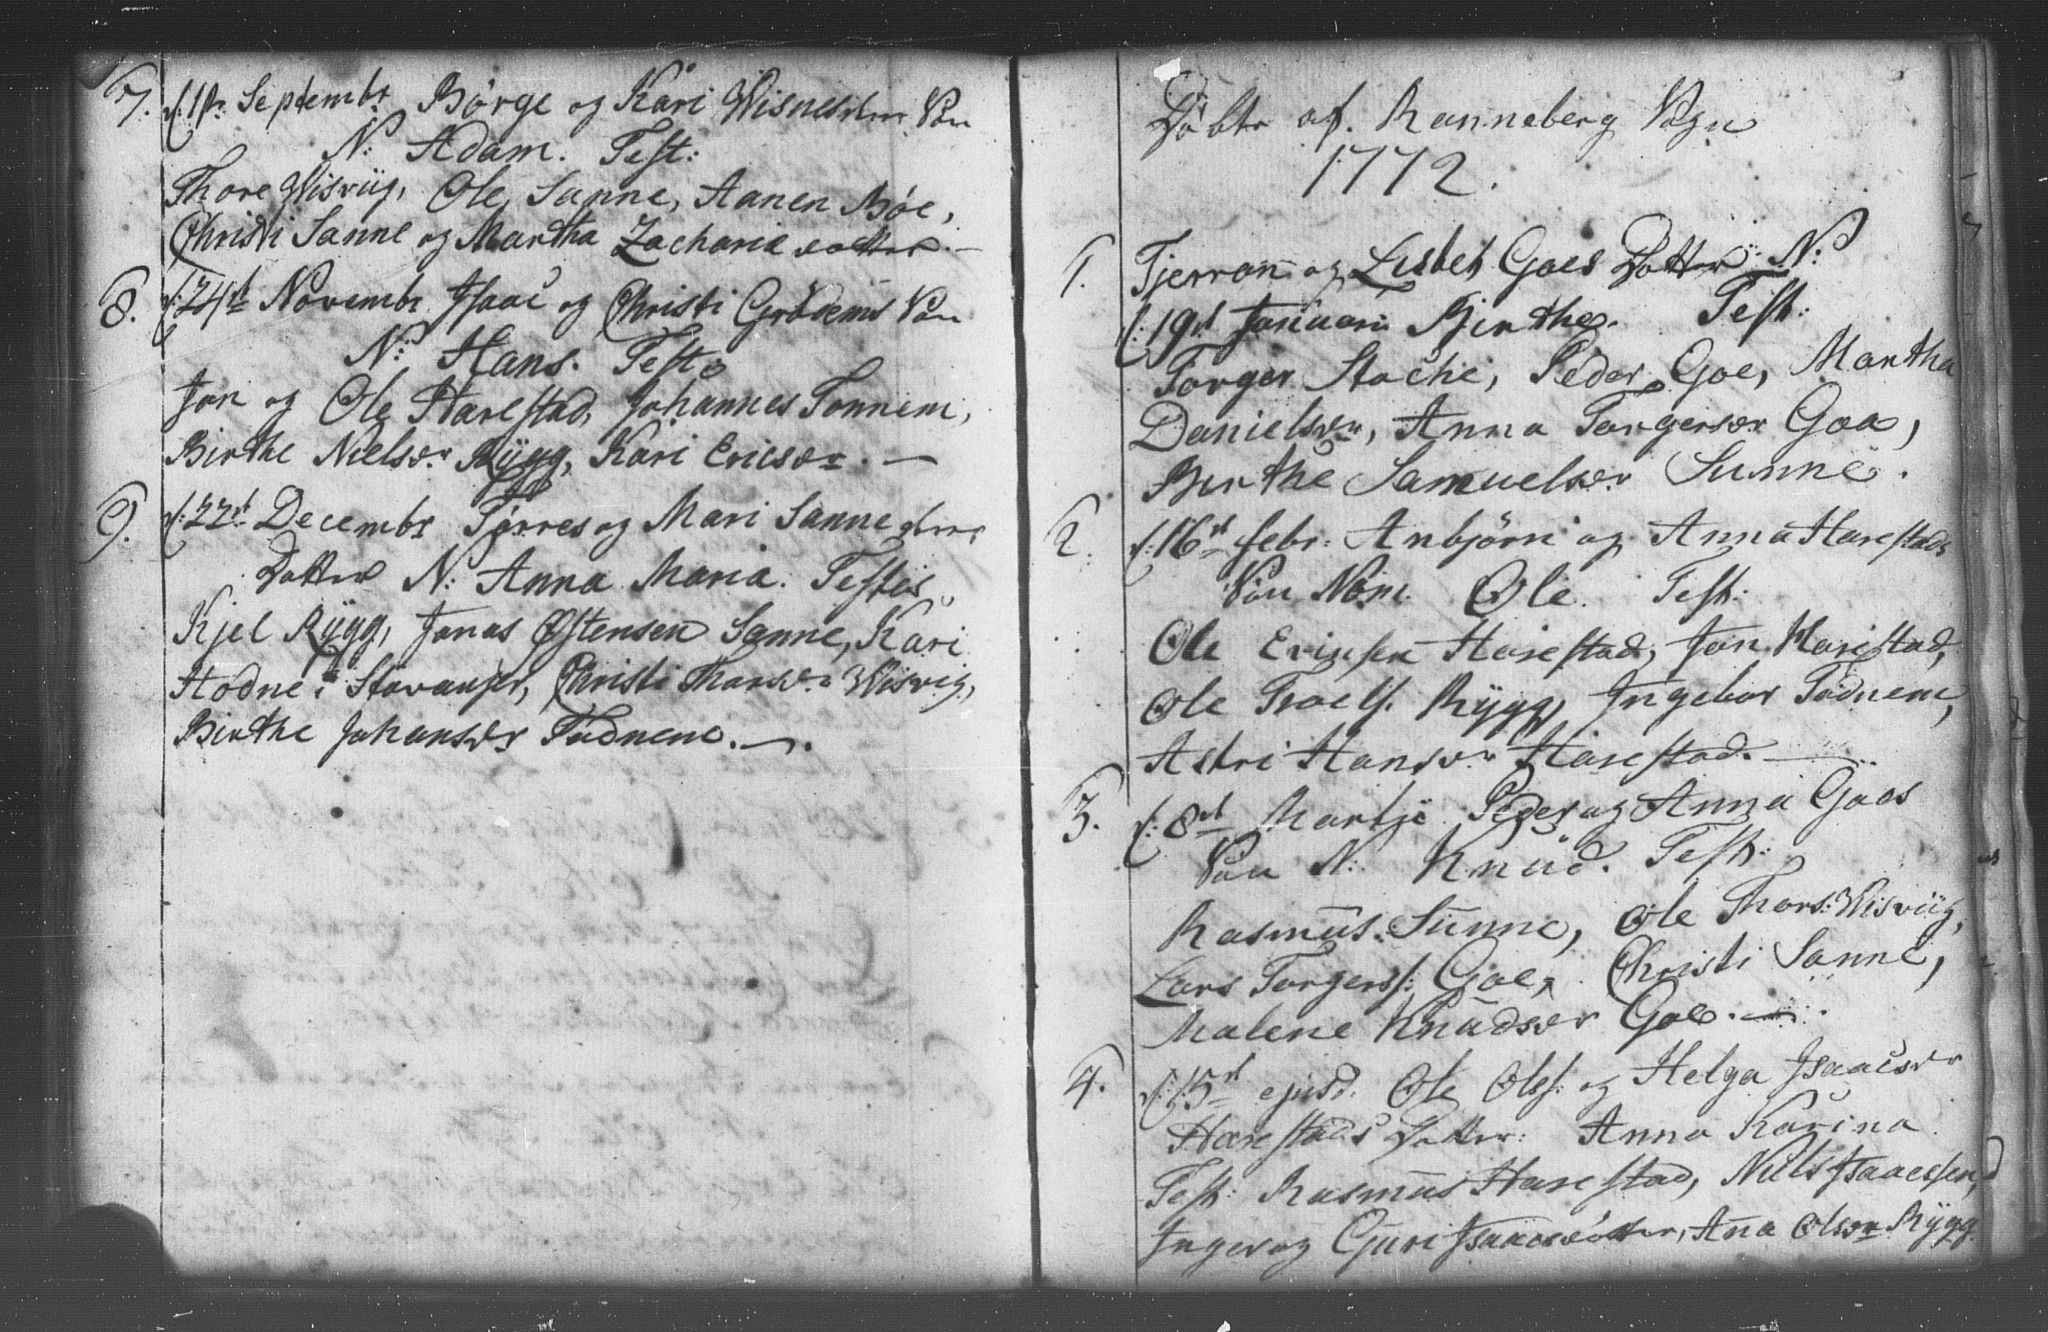 7. d: 1ste Septembr Børge og Kari Wisnes Søn
N: Adam. Test:
Thore Wisviig, Ole Sanne, Aanen Bøe,
Christi Sanne og Martha Zacharia datter. —
8. d: 24de Novembr Isaac og Christi Grødems Søn
N: Hans. Test:
Jon og Ole Harestad, Johannes Tonnem,
Birthe Nielsdr Rÿgg, Kari Ericsdr. —
9. d: 22d Decembr Tørres og Mari Sanne
Datter N: Anna Maria. Testes,
Kjel Rÿgg, Jonas Østensen Sanne, Kari
Hodne i Stavanger, Christi Thorsdr Wisvig,
Birthe Johansdr Todnem. —
Døbte af Ranneberg Sogn
1772.
1. Tjerran og Lisbet Goes Datter N:
d: 19d Januarii Birthe. Test:
Torger Stochi, Peder Goe, Martha
Danielsdr, Anna Torgersdr Goa,
Birthe Samuelsdr Sunne.
2. d: 16d febr: Anbjörn og Anna Harestads
Søn Nom. Ole. Test:
Ole Erinsen Harestad, Jon Harestad,
Ole Troels. Rÿgg, Ingebor Todnem,
Astri Hansdr Harestad. —
3. d: 8d Martji Peder og Anna Goes
Søn N: Knud. Test:
Rasmus Sunne, Ole Thors: Wisviig,
Lars Torgerss: Goe, Christi Sanne,
Malene Knudsdr Goe. —
4. d: 15d ejusd. Ole Olss: og Helga Isaacsdr
Harestads Datter: Anna Karina
Test: Rasmus Harestad, Niels Isaacssen,
Inger og Guri Isaacsdötter, Ana Olsdr Rÿgg